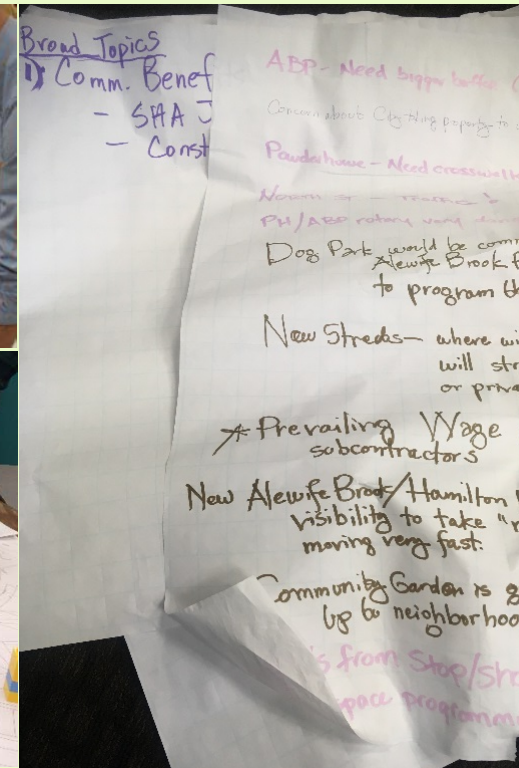 Broad Topics
1) Comm. Benef
- SHA
- Const
ABP - Need bigger buffer
Concern about City
Powderhouse - Need crosswalk
PH/ABP rotary very
Dog Park would be comm
Alewife Brook
to program th
New Streets - where wi
will str
or priva
* Prevailing Wage
subcontractors
New Alewife Brook/Hamilton
visibility to take "r
moving very fast.
Community Garden is g
up to neighborhoo
s from Stop/Sho
space programm